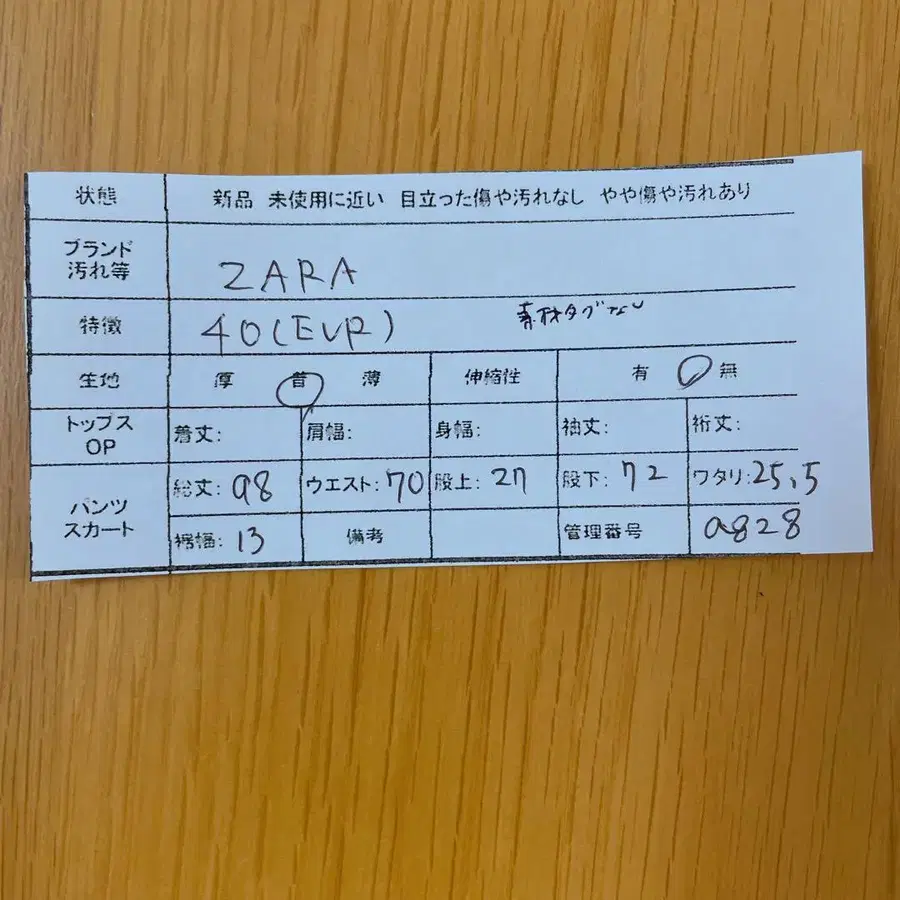 状態 新品 未使用に近い 目立った傷や汚れなし やや傷や汚れあり
ブランド
汚れ等 ZARA
特徴 40(EUR) 素材タグなし
生地 厚 普 薄 伸縮性 有 無
トップス
OP 着丈: 肩幅: 身幅: 袖丈: 裄丈:
パンツ
スカート 総丈: 98 ウエスト: 70 股上: 27 股下: 72 ワタリ: 25.5
裾幅: 13 備考 管理番号 a828